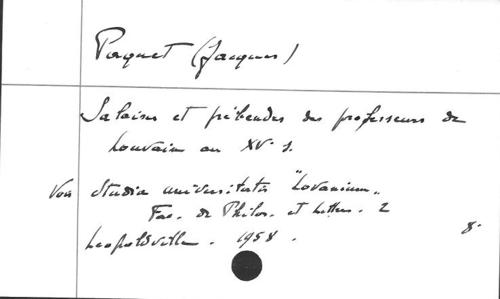 Paquet (Jacques)
Salaires et prébendes des professeurs de
Louvain au XVe s.
Voir Studia universitatis "Lovanium".
Fac. de Philos. et Lettres. 2
Leopoldville. 1958.
8°